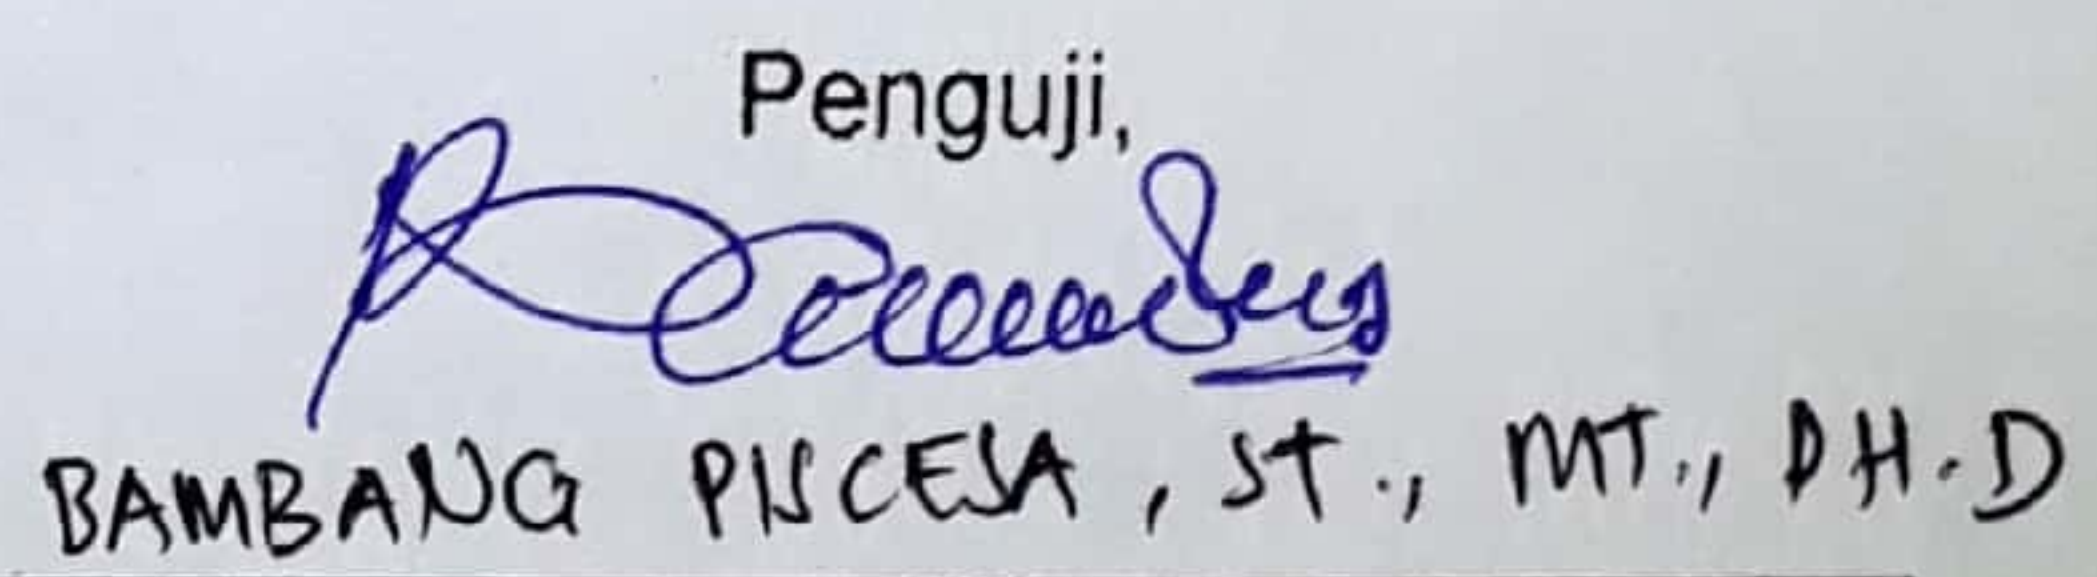 Penguji,
BAMBANG PISCESA, ST., MT., PH.D